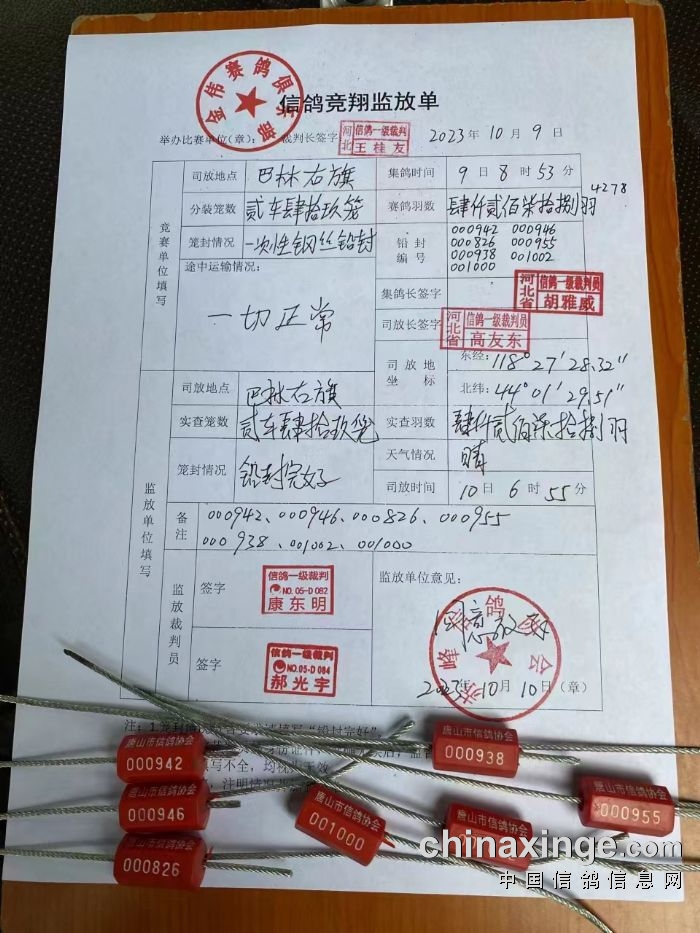 金伟赛鸽俱乐部
信鸽竞翔监放单
举办比赛单位(章): 裁判长签字
河北 信鸽一级裁判 王桂友
2023年10月9日
竞赛单位填写
司放地点 巴林右旗 集鸽时间 9日8时53分
分装笼数 贰车肆拾玖笼 赛鸽羽数 肆仟贰佰柒拾捌羽 4278
笼封情况 一次性钢丝铅封 铅封编号
000942 000946
000826 000955
000938 001002
001000
途中运输情况:
一切正常
集鸽长签字 河北省 信鸽一级裁判员 胡雅威
司放长签字 河北省 信鸽一级裁判员 高友东
司放地坐标 东经: 118°27′28.32″
北纬: 44°01′29.51″
监放单位填写
司放地点 巴林右旗
实查笼数 贰车肆拾玖笼 实查羽数 肆仟贰佰柒拾捌羽
笼封情况 铅封完好 天气情况 晴
司放时间 10日6时55分
备注 000942、000946、000826、000955
000938、001002、001000
监放裁判员
签字 信鸽一级裁判 NO.05-D082 康东明
签字 信鸽一级裁判 NO.05-D084 郝光宇
监放单位意见:
2023年10月10日(章)
注:1
"铅封完好"
写不全,均视为无效
注明情况
唐山市信鸽协会
000942
000946
唐山市信鸽协会
000826
唐山市信鸽协会
001000
唐山市信鸽协会
000938
唐山市信鸽协会
唐山市信鸽协会
000955
chinaxinge.com
中国信鸽信息网